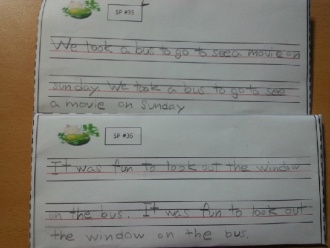 SP #33
We took a bus to go to see a movie on
Sunday We took a bus to go to see
a movie on Sunday
SP #36
It was fun to look out the window
on the bus. It was fun to look out
the window on the bus.